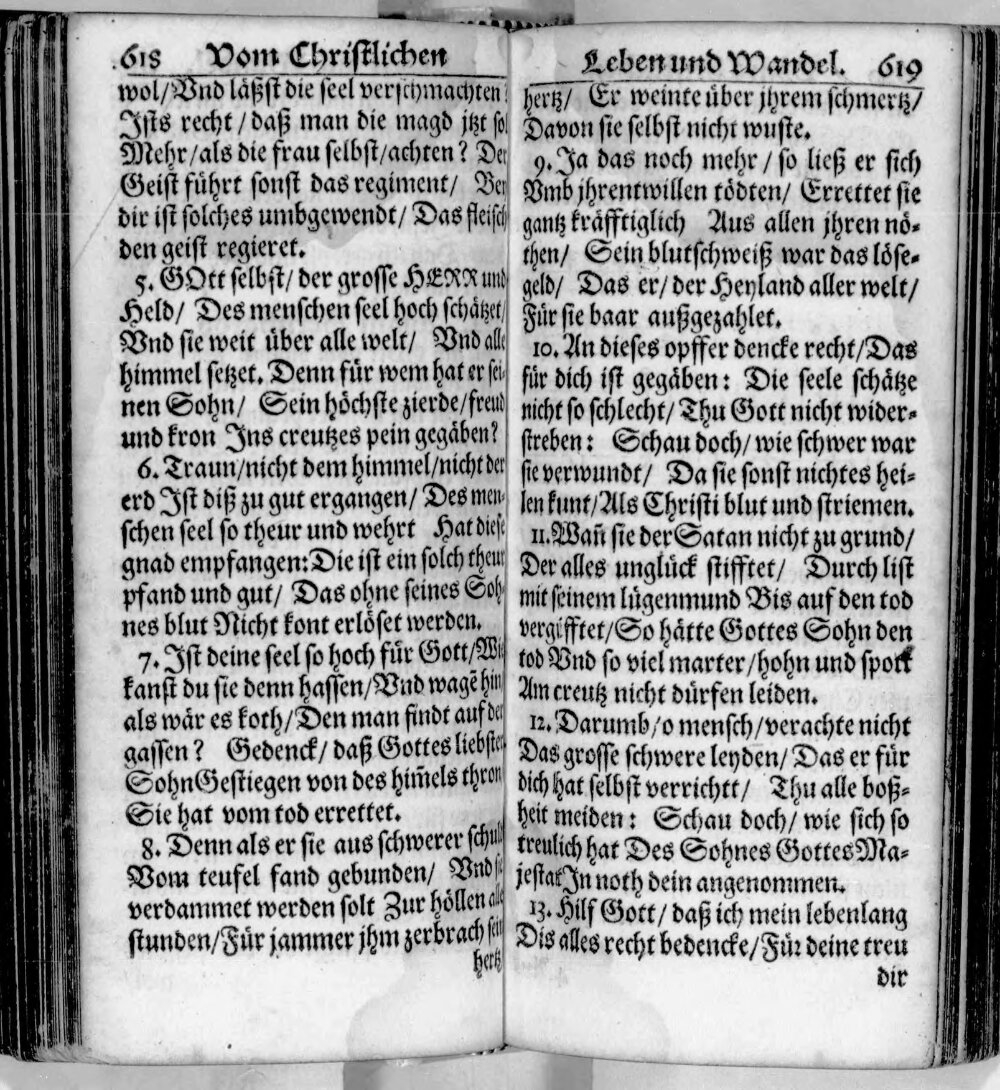 618 Vom Christlichen
wol/Vnd läßst die seel verschmachten?
Ists recht/daß man die magd jtzt sol
Mehr/als die frau selbst/achten? Der
Geist führt sonst das regiment/ Bey
dir ist solches umbgewendt/ Das fleisch
den geist regieret.
5. GOtt selbst/ der grosse HERR und
Held/ Des menschen seel hoch schätzet/
Vnd sie weit über alle welt/ Vnd alle
himmel setzet. Denn für wem hat er sei-
nen Sohn/ Sein höchste zierde/freud
und kron Ins creutzes pein gegäben?
6. Traun/nicht dem himmel/nicht der
erd Ist diß zu gut ergangen/ Des men-
schen seel so theur und wehrt Hat diese
gnad empfangen:Die ist ein solch theur
pfand und gut/ Das ohne seines Soh-
nes blut Nicht kont erlöset werden.
7. Ist deine seel so hoch für Gott/Wie
kanst du sie denn hassen/Vnd wagē hin
als wär es koth/Den man findt auf der
gassen? Gedenck/daß Gottes liebster
SohnGestiegen von des him̄els thron
Sie hat vom tod errettet.
8. Denn als er sie aus schwerer schuld
Vom teufel fand gebunden/ Vnd sie
verdammet werden solt Zur höllen alle
stunden/Für jammer jhm zerbrach sein
hertz
Leben und Wandel. 619
hertz/ Er weinte über jhrem schmertz/
Davon sie selbst nicht wuste.
9. Ja das noch mehr/ so ließ er sich
Vmb jhrentwillen tödten/ Errettet sie
gantz kräfftiglich Aus allen jhren nö-
then/ Sein blutschweiß war das löse-
geld/ Das er/ der Heyland aller welt/
Für sie baar außgezahlet.
10. An dieses opffer dencke recht/Das
für dich ist gegäben: Die seele schätze
nicht so schlecht/Thu Gott nicht wider-
streben: Schau doch/ wie schwer war
sie verwundt/ Da sie sonst nichtes hei-
len kunt/Als Christi blut und striemen.
11. Wan̄ sie der Satan nicht zu grund/
Der alles unglück stifftet/ Durch list
mit seinem lügenmund Bis auf den tod
vergifftet/So hätte Gottes Sohn den
tod Vnd so viel marter/hohn und spott
Am creutz nicht dürfen leiden.
12. Darumb/o mensch/verachte nicht
Das grosse schwere leyden/ Das er für
dich hat selbst verrichtt/ Thu alle boß-
heit meiden: Schau doch/ wie sich so
treulich hat Des Sohnes Gottes Ma-
jestat In noth dein angenommen.
13. Hilf Gott/ daß ich mein lebenlang
Dis alles recht bedencke/Für deine treu
dir